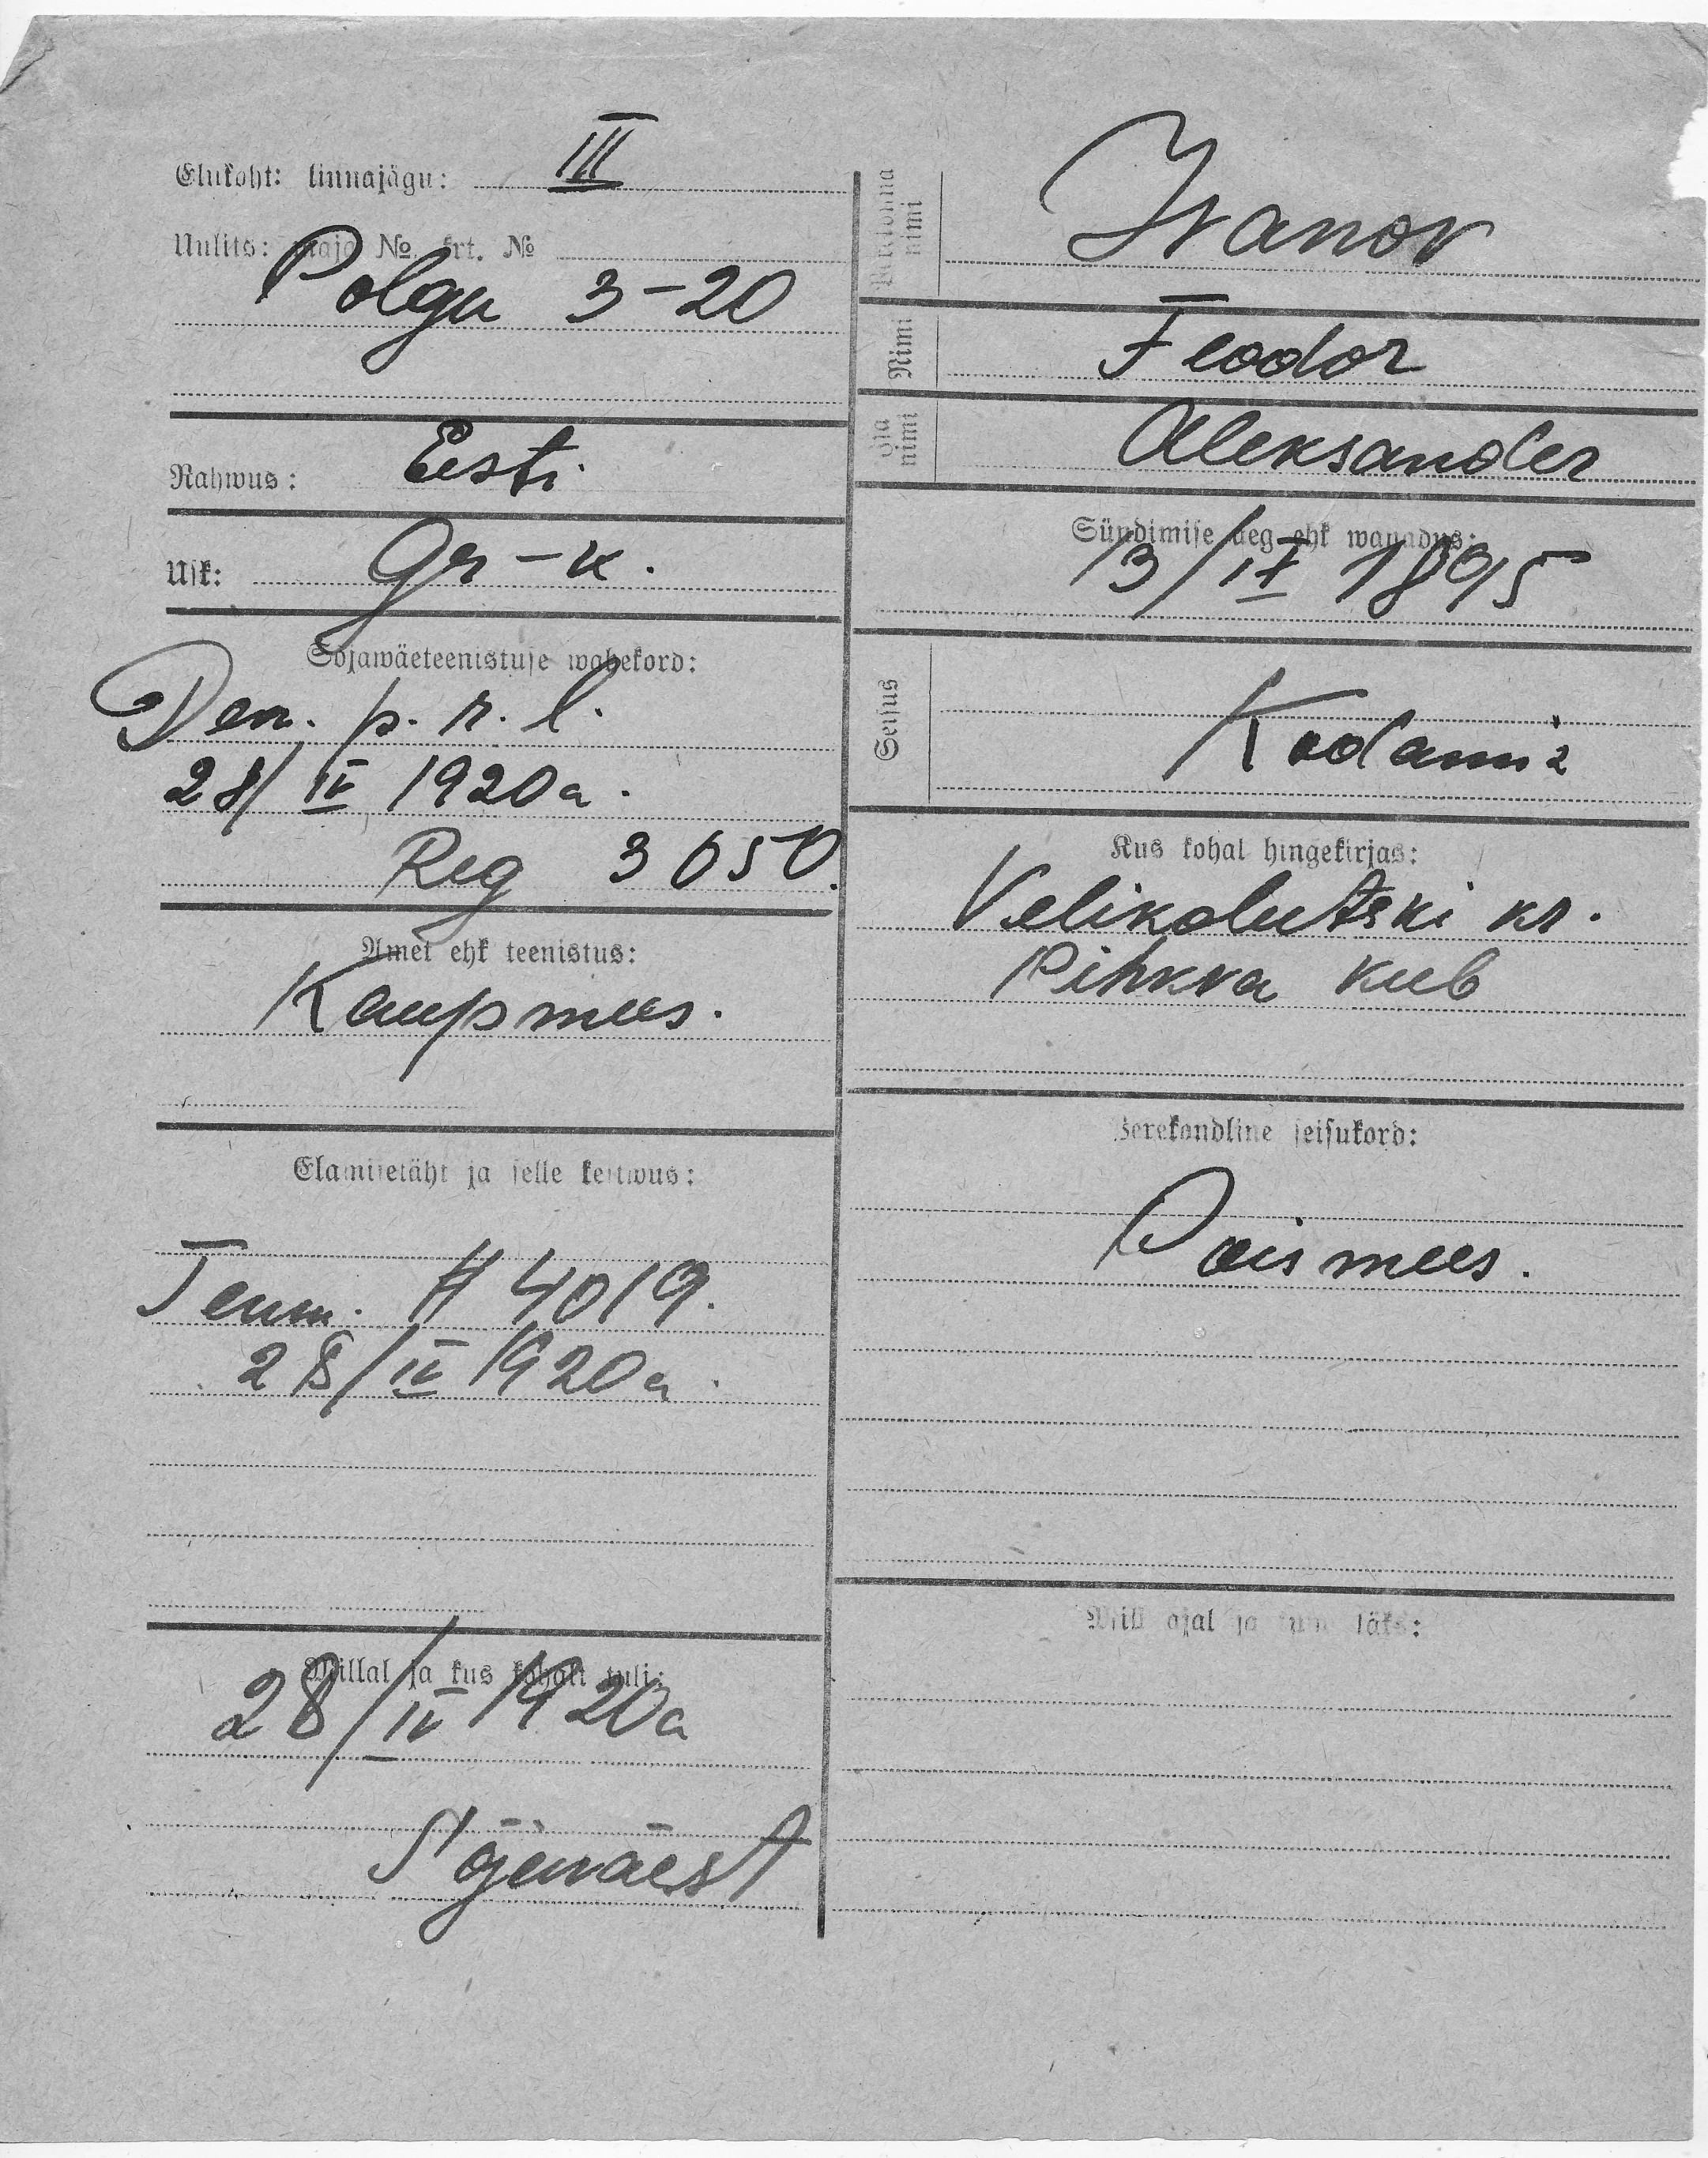 Elukoht: linnajagu: III
Uulits: maja № krt. №
Polgu 3-20
Rahwus: Eesti
Usk: Gr-k.
Sõjawäeteenistuse wahekord:
Dem. p. r. l.
28/IV 1920 a.
Reg 3650.
Amet ehk teenistus:
Kaupmees.
Elamisetäht ja selle kestwus:
Tunn. # 4019.
28/IV 1920 a.
Millal ja kus kohalt tuli:
28/IV 1920 a
Sõjaväest
Perekonna nimi
Ivanov
Nimi
Feodor
Isa nimi
Aleksander
Sündimise aeg ehk wanadus:
13/IX 1895
Seisus
Kodanik
Kus kohal hingekirjas:
Velikolutski kr.
Pihkva kub
Perekondline seisukord:
Poismees.
Mill ajal ja kuhu läks: